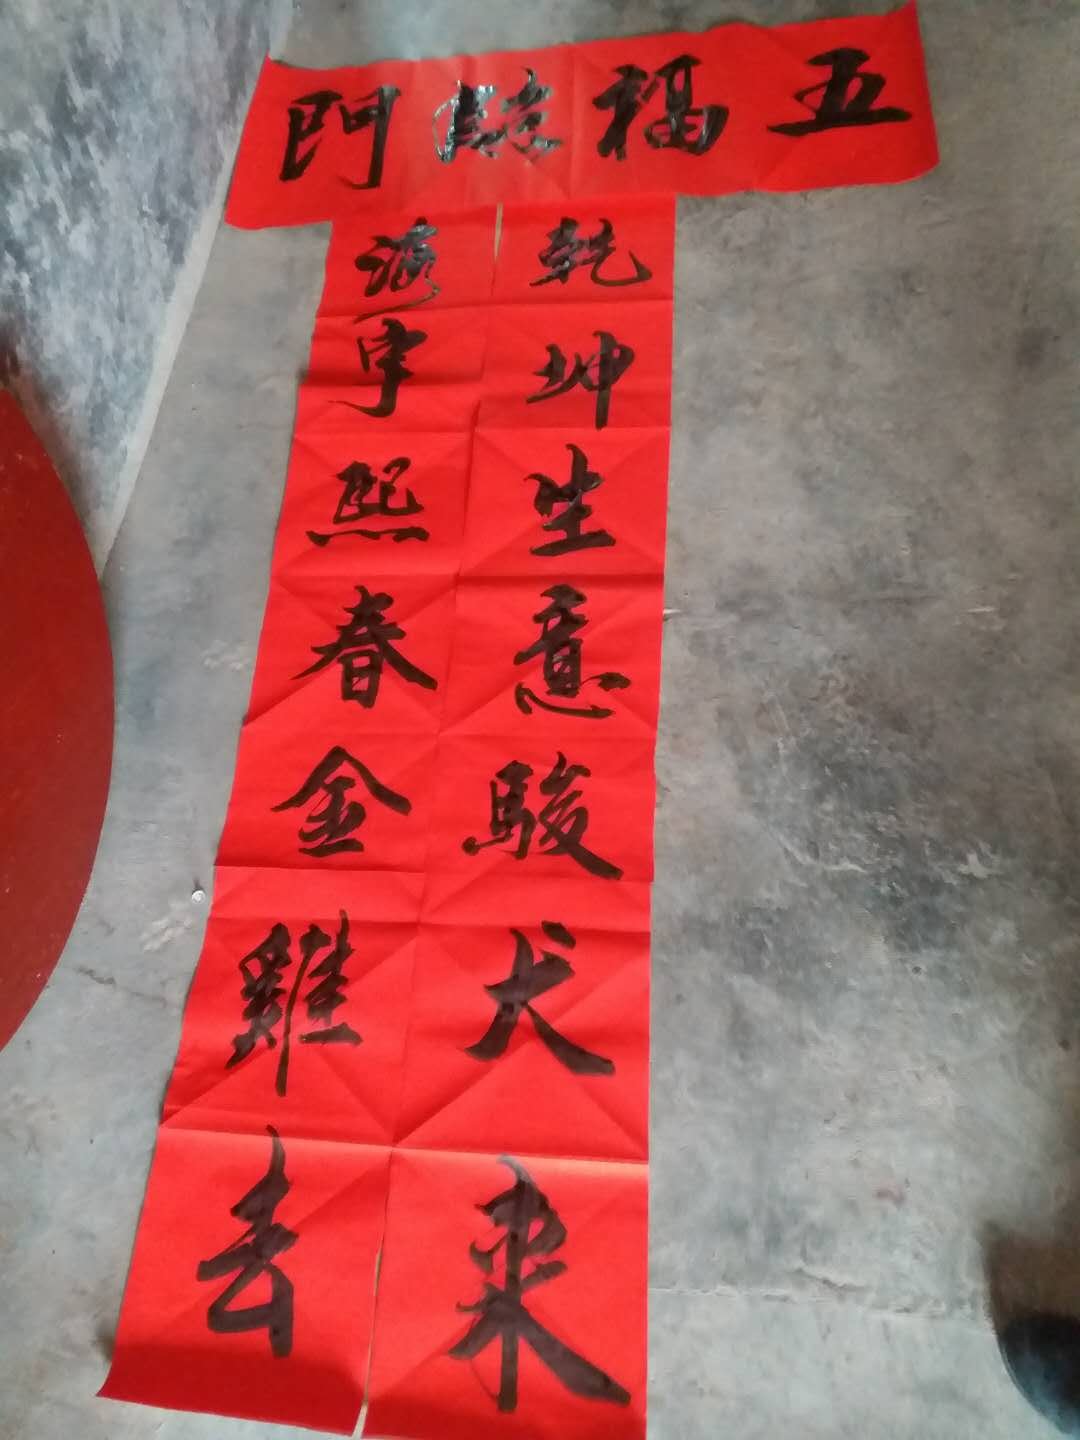 五福臨門
乾坤生意駿犬来
海宇熙春金雞去